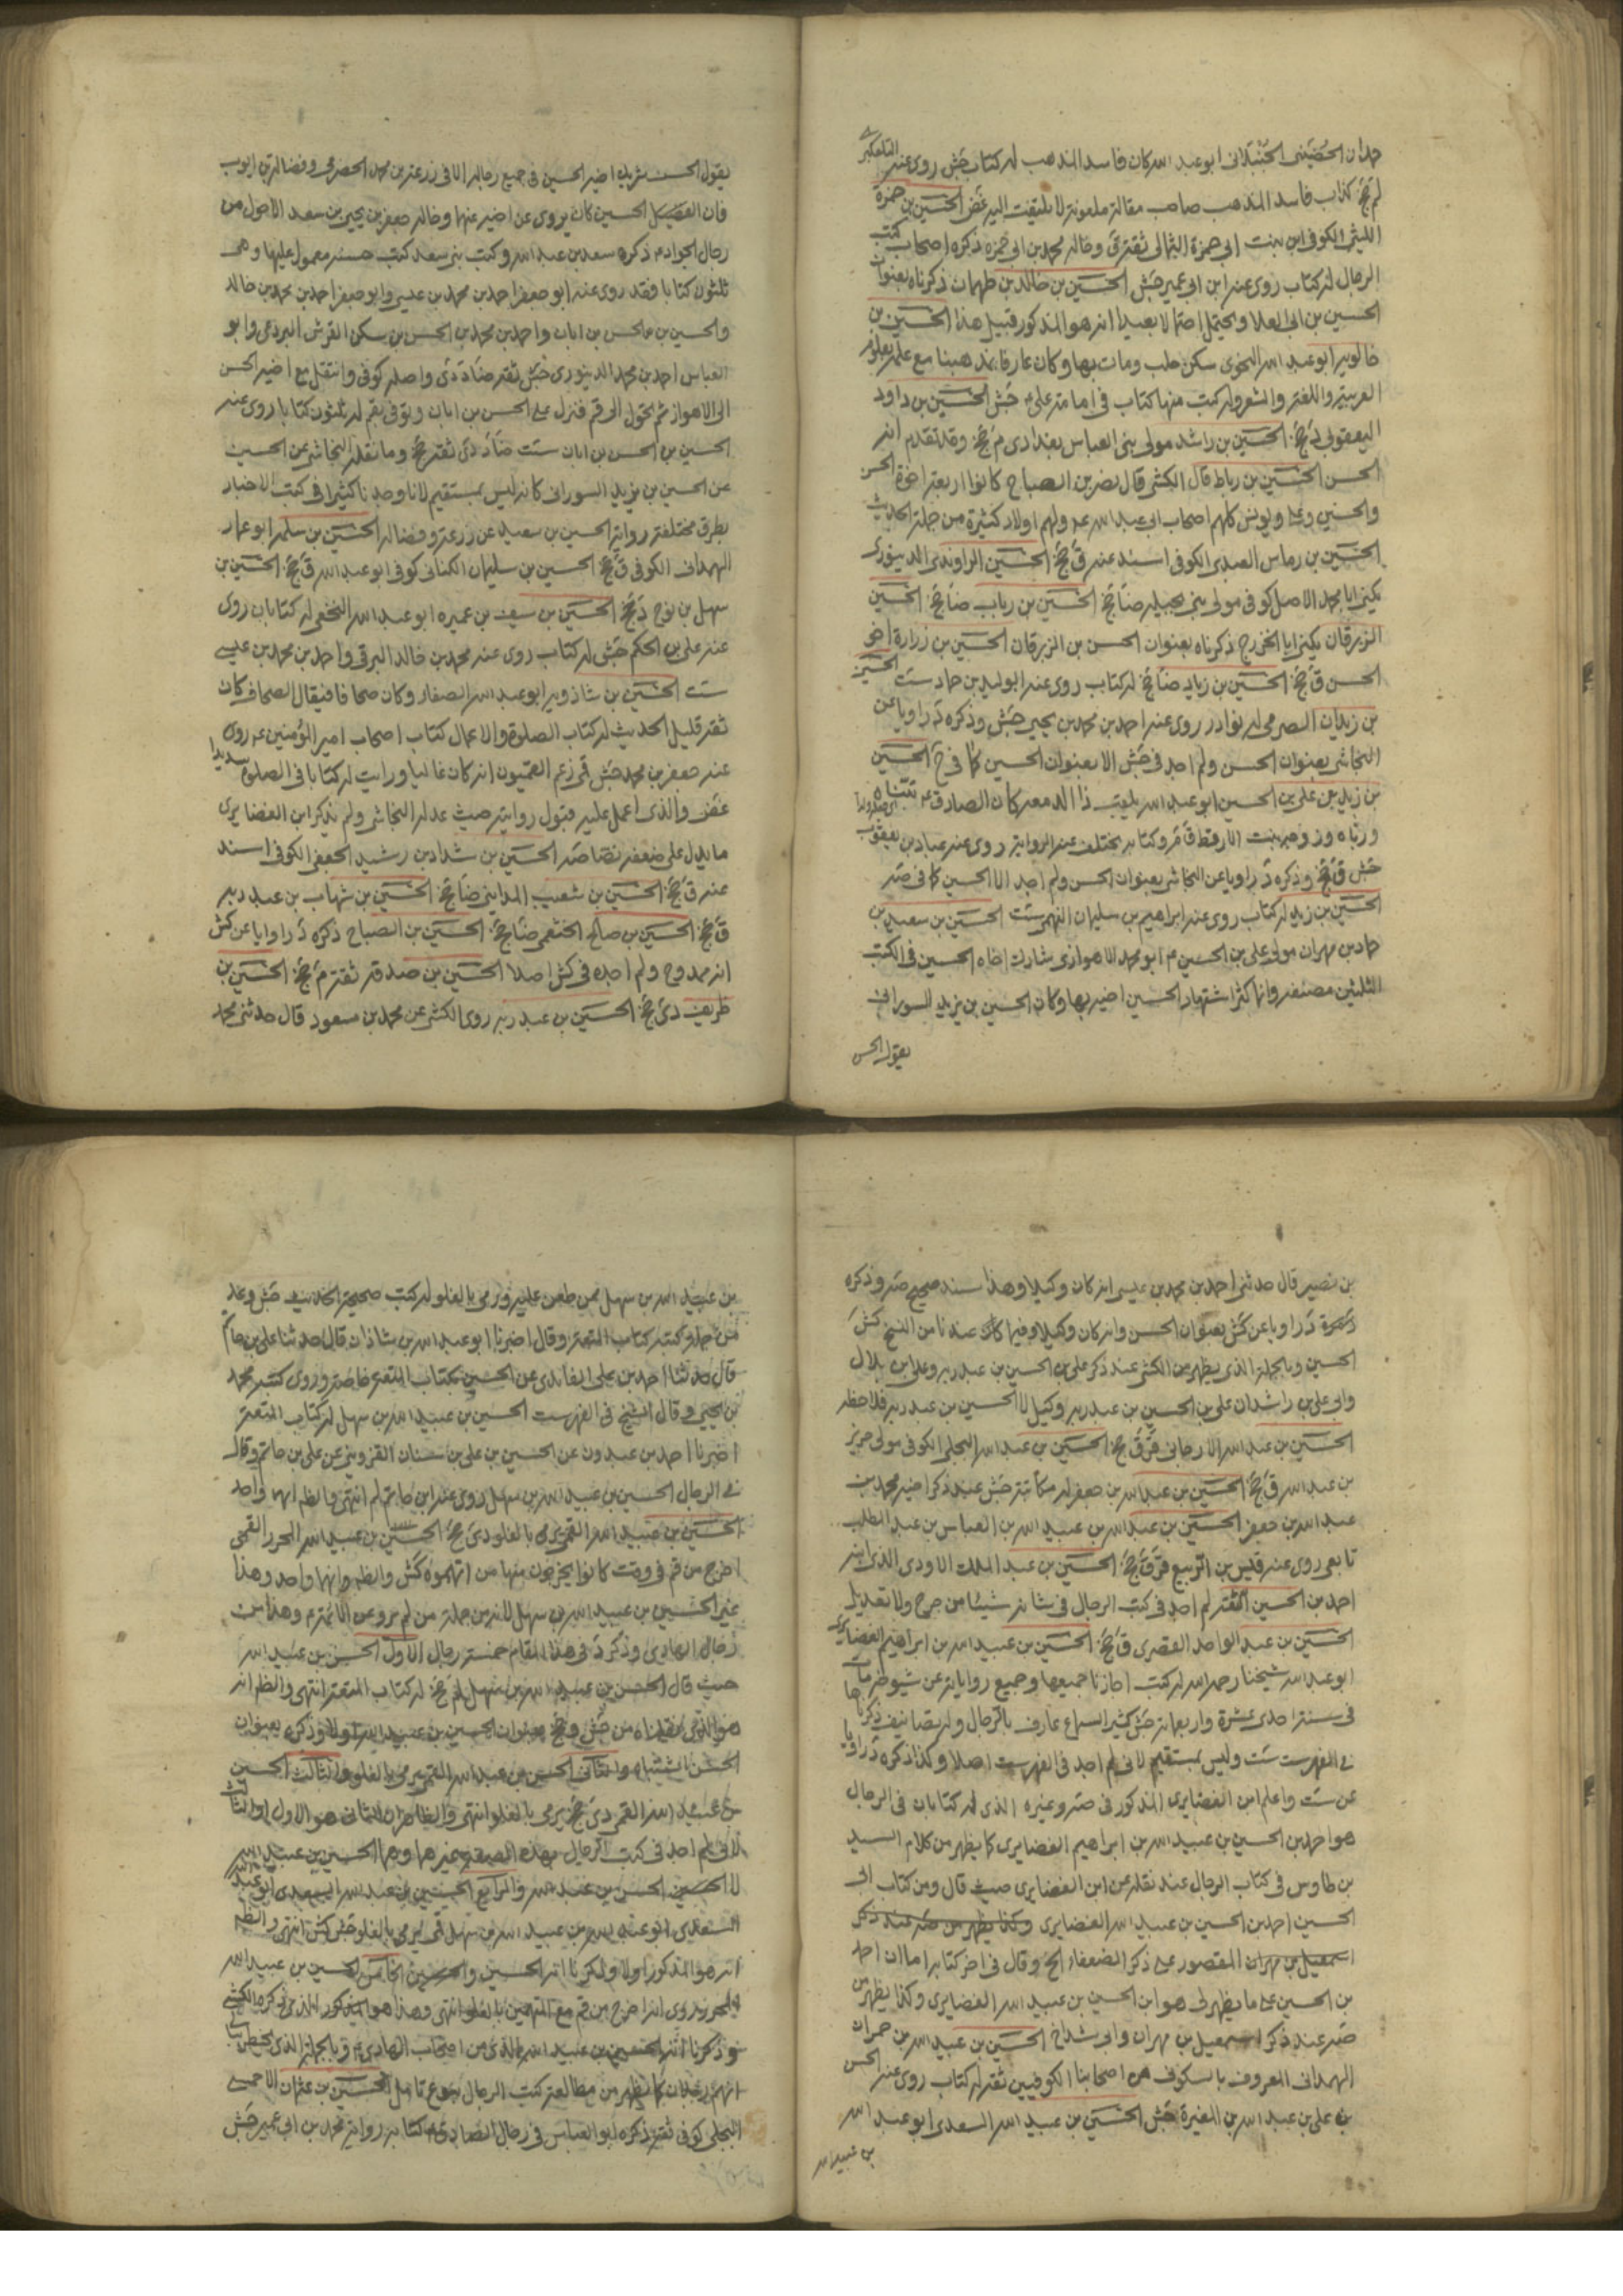 حمدان الحضيني الجنبلاني ابو عبد الله كان فاسد المذهب له كتاب جش روى عنه التلعكبري
لم جخ كذاب فاسد المذهب صاحب مقالة ملعونة لا يلتفت اليه غض الحسين بن حمزة
الليثي الكوفي ابن بنت ابي حمزة الثمالي ثقة ق وخاله محمد بن ابي حمزه ذكره اصحاب كتب
الرجال له كتاب روى عنه ابن ابي عمير جش الحسين بن خالد بن طهمان ذكرناه بعنوان
الحسين بن ابي العلا ويحتمل احتمالا بعيدا انه هو المذكور قبيل هذا الحسين بن
خالويه ابو عبد الله النحوى سكن حلب ومات بها وكان عارفا بمذهبنا مع علمه بعلوم
العربية واللغة والشعر وله كتب منها كتاب في امامة علي ع جش الحسين بن داود
اليعقوبي د جخ الحسين بن راشد مولى بني العباس بغدادى م جخ وقد تقدم انه
الحسن الحسين بن رباط قال الكشي قال نصر بن الصباح كانوا اربعة اخوة الحسن
والحسين وعلى ويونس كلهم اصحاب ابي عبد الله ع ولهم اولاد كثيرة من حملة الحديث
الحسين بن رماس العبدى الكوفي اسند عنه ق جخ الحسين الراوندى الدينورى
يكنى ابا محمد الاصل كوفي مولى بني بجيله ضا جخ الحسين بن رباب ضا جخ الحسين
الزبرقان يكنى ابا الخزرج ذكرناه بعنوان الحسن بن الزبرقان الحسين بن زرارة اخو
الحسن ق جخ الحسين بن زياد ضا جخ له كتاب روى عنه ابو وليد بن حماد ست الحسين
بن زيدان الصرمى له نوادر روى عنه احمد بن محمد بن يحيى جش وذكره د راويا عن
النجاشي بعنوان الحسن ولم اجد في جش الا بعنوان الحسين كما في ح الحسين
بن زيد بن على بن الحسين ابو عبد الله يلقب ذا الدمعه كان الصادق ع تبناه
ورباه وزوجه بنت الارقط ق م وكتابه يختلف عنه الرواية روى عنه عباد بن يعقوب
جش ق جخ وذكره د راويا عن النجاشي بعنوان الحسن ولم اجد الا الحسين كما في صه
الحسين بن زيد له كتاب روى عنه ابراهيم بن سليمان النهمى ست الحسين بن سعيد بن
حماد بن مهران مولى على بن الحسين ع ابو محمد الاهوازى شارك اخاه الحسين في الكتب
الثلثين مصنفه وانما كثر اشتهار الحسين اخيه بها وكان الحسين بن يزيد السوراني
يقول الحسن
يقول الحسن شريك اخيه الحسين في جميع رجاله الا في زرعة بن محمد الحضرمى وفضالة بن ايوب
فان الحسين كان يروى عن اخيه عنهما وخاله جعفر بن يحيى بن سعد الاحول من
رجال الجواد ع ذكره سعد بن عبد الله وكتب بني سعيد كتب حسنه معمول عليها وهى
ثلثون كتابا فقد روى عنه ابو جعفر احمد بن محمد بن عيسى وابو جعفر احمد بن محمد بن خالد
والحسين بن الحسن بن ابان واحمد بن محمد بن الحسن بن سكن القرشى البردعى وابو
العباس احمد بن محمد الدينورى جش ثقة ضا د دى واصله كوفي وانتقل مع اخيه الحسن
الى الاهواز ثم تحول الى قم فنزل على الحسن بن ابان وتوفي بقم له ثلثون كتابا روى عنه
الحسين بن الحسن بن ابان ست ضا د دى ثقة جخ وما نقله النجاشي عن الحسين
عن الحسين بن يزيد السوراني كانه ليس بمستقيم لانا وجدنا كثيرا في كتب الاخبار
بطرق مختلفة رواية الحسين بن سعيد عن زرعة وفضاله الحسين بن سلمه ابو عمار
الهمداني الكوفي ق جخ الحسين بن سليمان الكناني كوفي ابو عبد الله ق جخ الحسين بن
سهل بن نوح د جخ الحسين بن سيف بن عميره ابو عبد الله النخعى له كتابان روى
عنه على بن الحكم جش له كتاب روى عنه محمد بن خالد البرقى واحمد بن محمد بن عيسى
ست الحسين بن شاذويه ابو عبد الله الصفار وكان صحافا فيقال الصحاف كان
ثقة قليل الحديث له كتاب الصلوة والاعمال كتاب اصحاب امير المؤمنين ع روى
عنه جعفر بن محمد جش قمى زعم القميون انه كان غاليا ورايت له كتابا في الصلوة سديدا
غض والذى اعمل عليه قبول روايته حيث عدله النجاشي ولم يذكر ابن الغضايرى
ما يدل على ضعفه نصا صه الحسين بن شداد بن رشيد الجعفى الكوفي اسند
عنه ق جخ الحسين بن شعيب المدايني ضا جخ الحسين بن شهاب بن عبد ربه
ق جخ الحسين بن صالح الخثعمى ضا جخ الحسين بن الصباح ذكره د راويا عن كش
انه ممدوح ولم اجده في كش اصلا الحسين بن صدقه ثقة م جخ الحسين بن
ظريف دى جخ الحسين بن عبد ربه روى الكشي عن محمد بن مسعود قال حدثني محمد
بن نصير قال حدثني احمد بن محمد بن عيسى انه كان وكيلا وهذا سند صحيح صه وذكره
د راويا عن كش بعنوان الحسن وانه كان وكيلا وفيما كان عندنا من النسخ كش
الحسين وبالجملة الذى يظهر من الكشي عند ذكر على بن الحسين بن عبد ربه وعلى بن بلال
وابي على بن راشد ان على بن الحسين بن عبد ربه وكيل لا الحسين بن عبد ربه فلاحظه
الحسين بن عبد الله الارجاني قر ق جخ الحسين بن عبد الله البجلى الكوفي مولى جرير
بن عبد الله ق جخ الحسين بن عبد الله بن جعفر له مكاتبة جش عند ذكر اخيه محمد بن
عبد الله بن جعفر الحسين بن عبد الله بن عبيد الله بن العباس بن عبد المطلب
تابعى روى عنه قيس بن الربيع قر ق جخ الحسين بن عبد الملك الاودى الذى ابنه
احمد بن الحسين الثقة لم اجد في كتب الرجال في شانه شيئا من جرح ولا تعديل
الحسين بن عبد الواحد القصرى ق جخ الحسين بن عبيد الله بن ابراهيم الغضايرى
ابو عبد الله شيخنا رحمه الله له كتب اجازنا جميعها وجميع رواياته عن شيوخه مات
في سنة احدى عشرة واربعماية جش كثير السماع عارف بالرجال وله تصانيف ذكرناها
في الفهرست ست وليس بمستقيم لاني لم اجد في الفهرست اصلا وكذا ذكره د راويا
عن ست واعلم ابن الغضايرى المذكور في صه وغيره الذى له كتابان في الرجال
هو احمد بن الحسين بن عبيد الله بن ابراهيم الغضايرى كما يظهر من كلام السيد
بن طاوس في كتاب الرجال عند نقله عن ابن الغضايرى حيث قال ومن كتاب ابي
الحسين احمد بن الحسين بن عبيد الله الغضايرى وكذا يظهر من صه عند ذكر
اسمعيل بن مهران المقصور على ذكر الضعفاء الخ وقال في اخر كتابه اما ان احمد
بن الحسين على ما يظهر لى هو ابن الحسين بن عبيد الله الغضايرى وكذا يظهر من
صه عند ذكر اسمعيل بن مهران وابي شداخ الحسين بن عبيد الله بن حمران
الهمداني المعروف بالسكوني من اصحابنا الكوفيين ثقة له كتاب روى عنه الحسن
بن على بن عبد الله بن المغيرة جش الحسين بن عبيد الله السعدى ابو عبد الله
بن عبيد الله
بن عبيد الله بن سهل ممن طعن عليه ورمى بالغلو له كتب صحيحة الحديث جش وعد
من جملة كتبه كتاب المتعة وقال اخبرنا ابو عبد الله بن شاذان قال حدثنا على بن حاتم
قال حدثنا احمد بن على الفايدى عن الحسين بكتاب المتعة خاصة وروى كتبه محمد
بن يحيى وقال الشيخ في الفهرست الحسين بن عبيد الله بن سهل له كتاب المتعة
اخبرنا احمد بن عبدون عن الحسين بن على بن سنان القزويني عن على بن حاتم وقال
في الرجال الحسين بن عبيد الله بن سهل روى عنه ابن حاتم لم انتهى والظاهر انهما واحد
الحسين بن عبيد الله القمى يرمى بالغلو دى جخ الحسين بن عبيد الله المحرر القمى
اخرج من قم في وقت كانوا يخرجون منها من اتهموه كش والظاهر انهما واحد وهذا
غير الحسين بن عبيد الله بن سهل لانه من جملة من لم يرو عن الائمة ع وهذا من
رجال الهادى وذكر د في هذا المقام خمسة رجال الاول الحسن بن عبيد الله
حيث قال الحسن بن عبيد الله بن سهل لم جخ له كتاب المتعة انتهى والظاهر انه
هو الذى نقلناه من جش وجخ بعنوان الحسين بن عبيد الله اولا وذكره بعنوان
الحسن اشتباه والثاني الحسين بن عبيد الله القمى يرمى بالغلو والثالث الحسين
بن عبيد الله القمى دى جخ يرمى بالغلو انتهى والظاهر ان الثاني هو الاول او الثالث
لاني لم اجد في كتب الرجال بهذه الصفة غيرهما وهما الحسين بن عبيد الله
لا الحسن بن عبيد الله والرابع الحسين بن عبيد الله السعدى ابو عبد
السعدى ابو عبد الله بن عبيد الله بن سهل قمى يرمى بالغلو جش كش انتهى والظاهر
انه هو المذكور اولا وذكرنا انه الحسين والخامس الحسين بن عبيد الله
المحرر روى انه اخرج من قم مع المتهمين بالغلو انتهى وهذا هو المذكور الذى ذكره الكشي
وذكرنا انه الحسين بن عبيد الله الذى من اصحاب الهادى ع وبالجملة الذى يخطر ببالى
انهم رجلان كما يظهر من مطالعة كتب الرجال بنوع تامل الحسين بن عثمان الاحمسى
البجلى كوفي ثقة ذكره ابو العباس في رجال الصادق ع كتابه رواية محمد بن ابي عمير جش